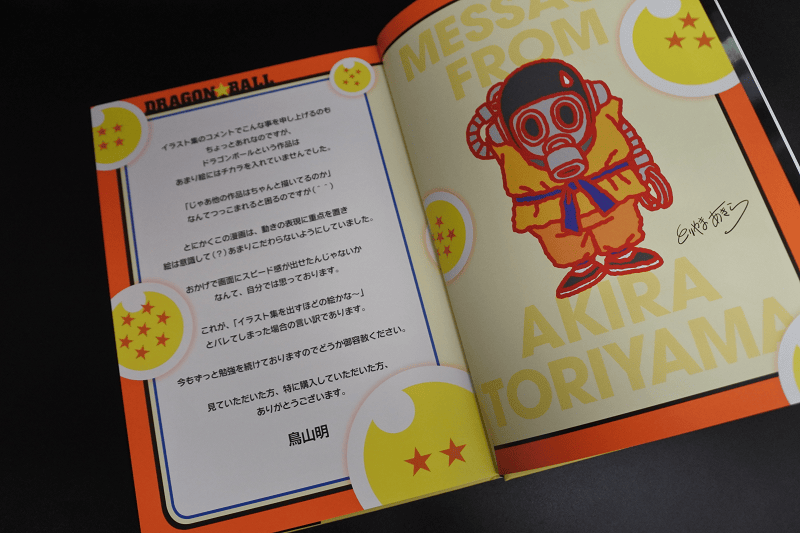 DRAGON BALL
イラスト集のコメントでこんな事を申し上げるのも
ちょっとあれなのですが、
ドラゴンボールという作品は
あまり絵にはチカラを入れていませんでした。
「じゃあ他の作品はちゃんと描いてるのか」
なんてつっこまれると困るのですが(＾＾)
とにかくこの漫画は、動きの表現に重点を置き
絵は意識して(？)あまりこだわらないようにしていました。
おかげで画面にスピード感が出せたんじゃないか
なんて、自分では思っております。
これが、「イラスト集を出すほどの絵かな〜」
とバレてしまった場合の言い訳であります。
今もずっと勉強を続けておりますのでどうか御容赦ください。
見ていただいた方、特に購入していただいた方、
ありがとうございます。
鳥山明
MESSAGE
FROM
とりやまあきら
AKIRA
TORIYAMA